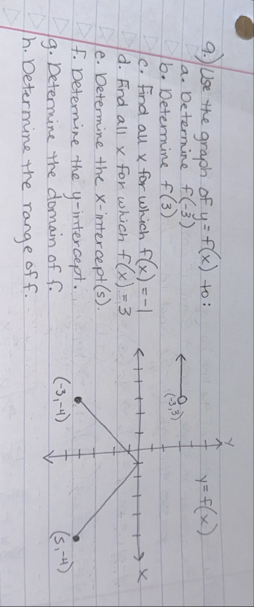 9.) Use the graph of y=f(x) to:
a. Determine f(-3)
b. Determine f(3)
c. Find all x for which f(x)=-1
d. Find all x for which f(x)=3
e. Determine the x-intercept(s).
f. Determine the y-intercept.
g. Determine the domain of f.
h. Determine the range of f.
y
y=f(x)
(-3,3)
x
(-3,-4)
(5,-4)